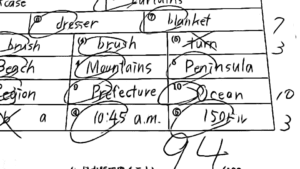 case curtains
⑥ dresser ⑦ blanket 7
brush ⑨ brush ⑩ turn 3
Beach ④ Mountains ⑤ Peninsula
Region ⑨ Prefecture ⑩ Ocean 10
b a ④ 10:45 a.m. ⑤ 150ドル 3
94